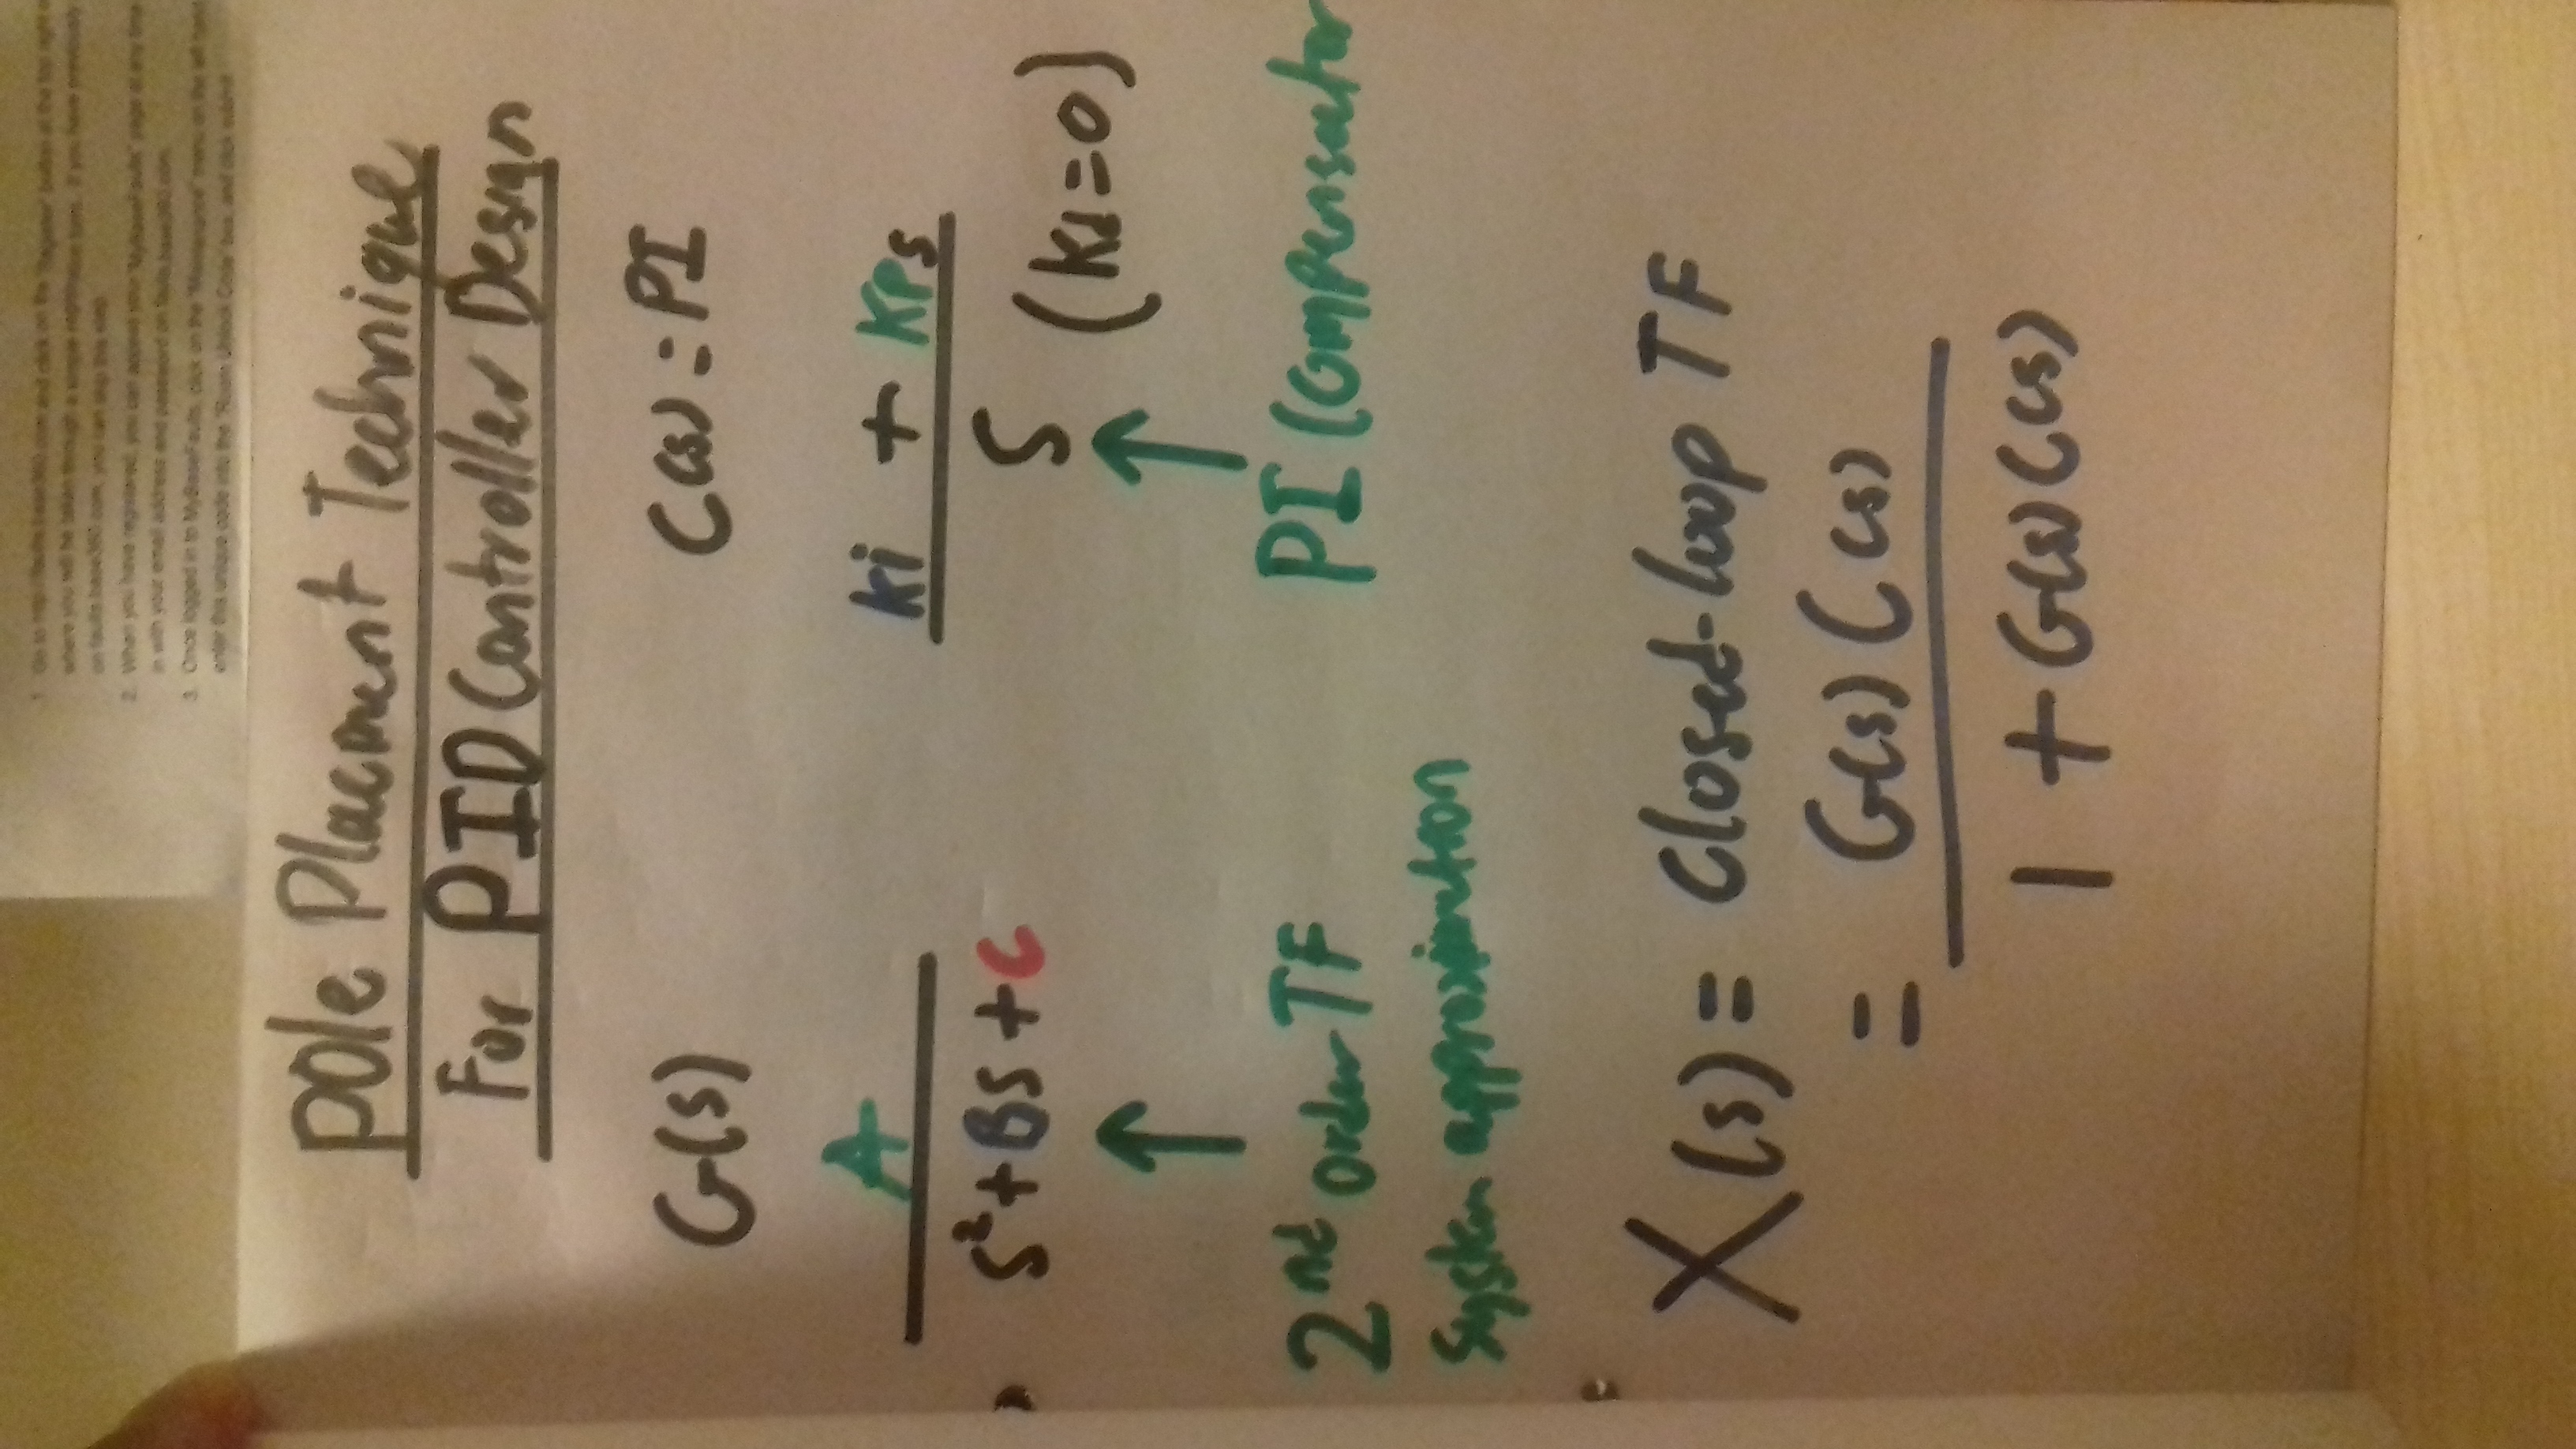 1. Go to http://faults.base360.com and click on the "Register" button at the top right
where you will be taken through a simple registration form. If you have previously
on faults.base360.com, you can skip this step.
2. When you have registered, you can access your "MyBaseFaults" page at any time
in with your email address and password on faults.base360.com.
3. Once logged in to MyBaseFaults, click on the "Maintenance" menu on the left hand
enter this unique code into the "Room Unlock Code" box, and click submit
Pole Placment Technique
For PID Controller Design
G(s) C(s) = PI
A
S²+BS+C
ki + KPs
S
(Kd=0)
2nd order TF
System approximation
PI Compensator
X(s) = Closed-loop TF
= G(s)C(s)
1 + G(s)C(s)